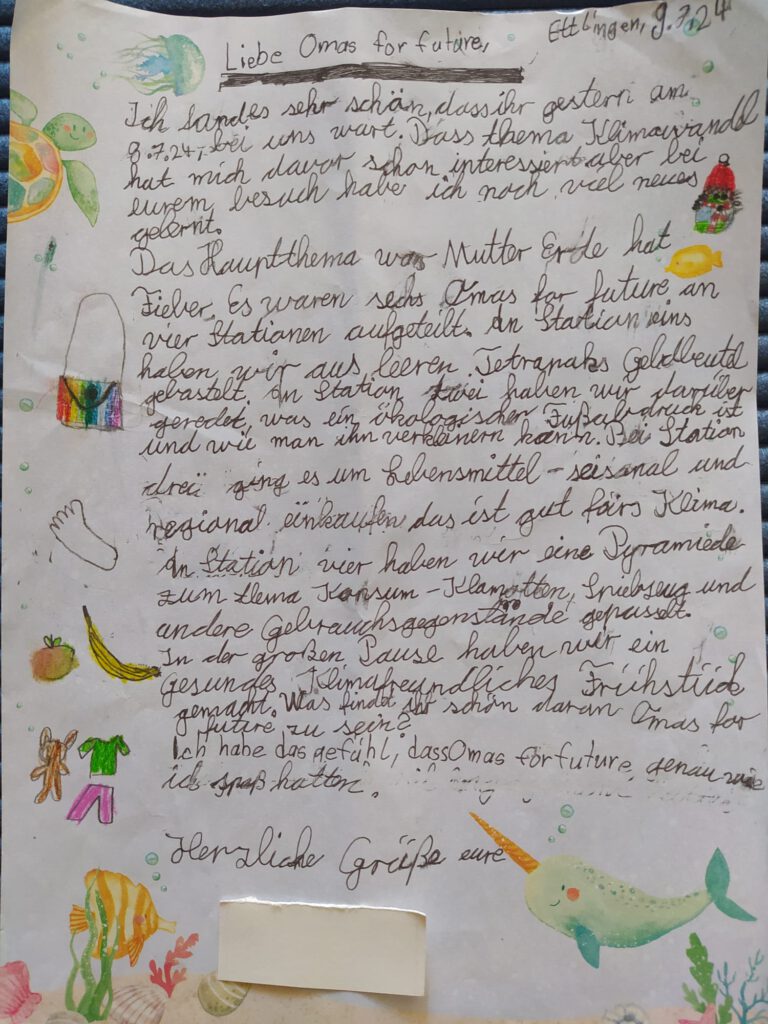 Ettlingen, 9.7.24
Liebe Omas for future,
Ich fandes sehr schön, dass ihr gestern am
9.7.24, bei uns wart. Dass thema Klimawandel
hat mich davor schon interessiert aber bei
eurem besuch habe ich noch viel neues
gelernt.
Das Hauptthema war Mutter Erde hat
Fieber. Es waren sechs Omas for future an
vier Stationen aufgeteilt. An Station eins
haben wir aus leeren Tetrapaks Geldbeutel
gebastelt. In Station zwei haben wir darüber
geredet, was ein ökologischer Fußabdruck ist
und wie man ihn verkleinern kann. Bei Station
drei ging es um Lebensmittel - seisonal und
regional einkaufen das ist gut fürs Klima.
An Station vier haben wir eine Pyramiede
zum tema Konsum - Klamotten, Spielzeug und
andere Gebrauchsgegenstände gepusselt.
In der großen Pause haben wir ein
gesundes Klimafreundliches Frühstück
gemapt. Was findet ihr schön daran Omas for
future zu sein?
Ich habe das gefühl, dass Omas for future, genau wie
ich spaß hatten.
Herzliche Grüße eure